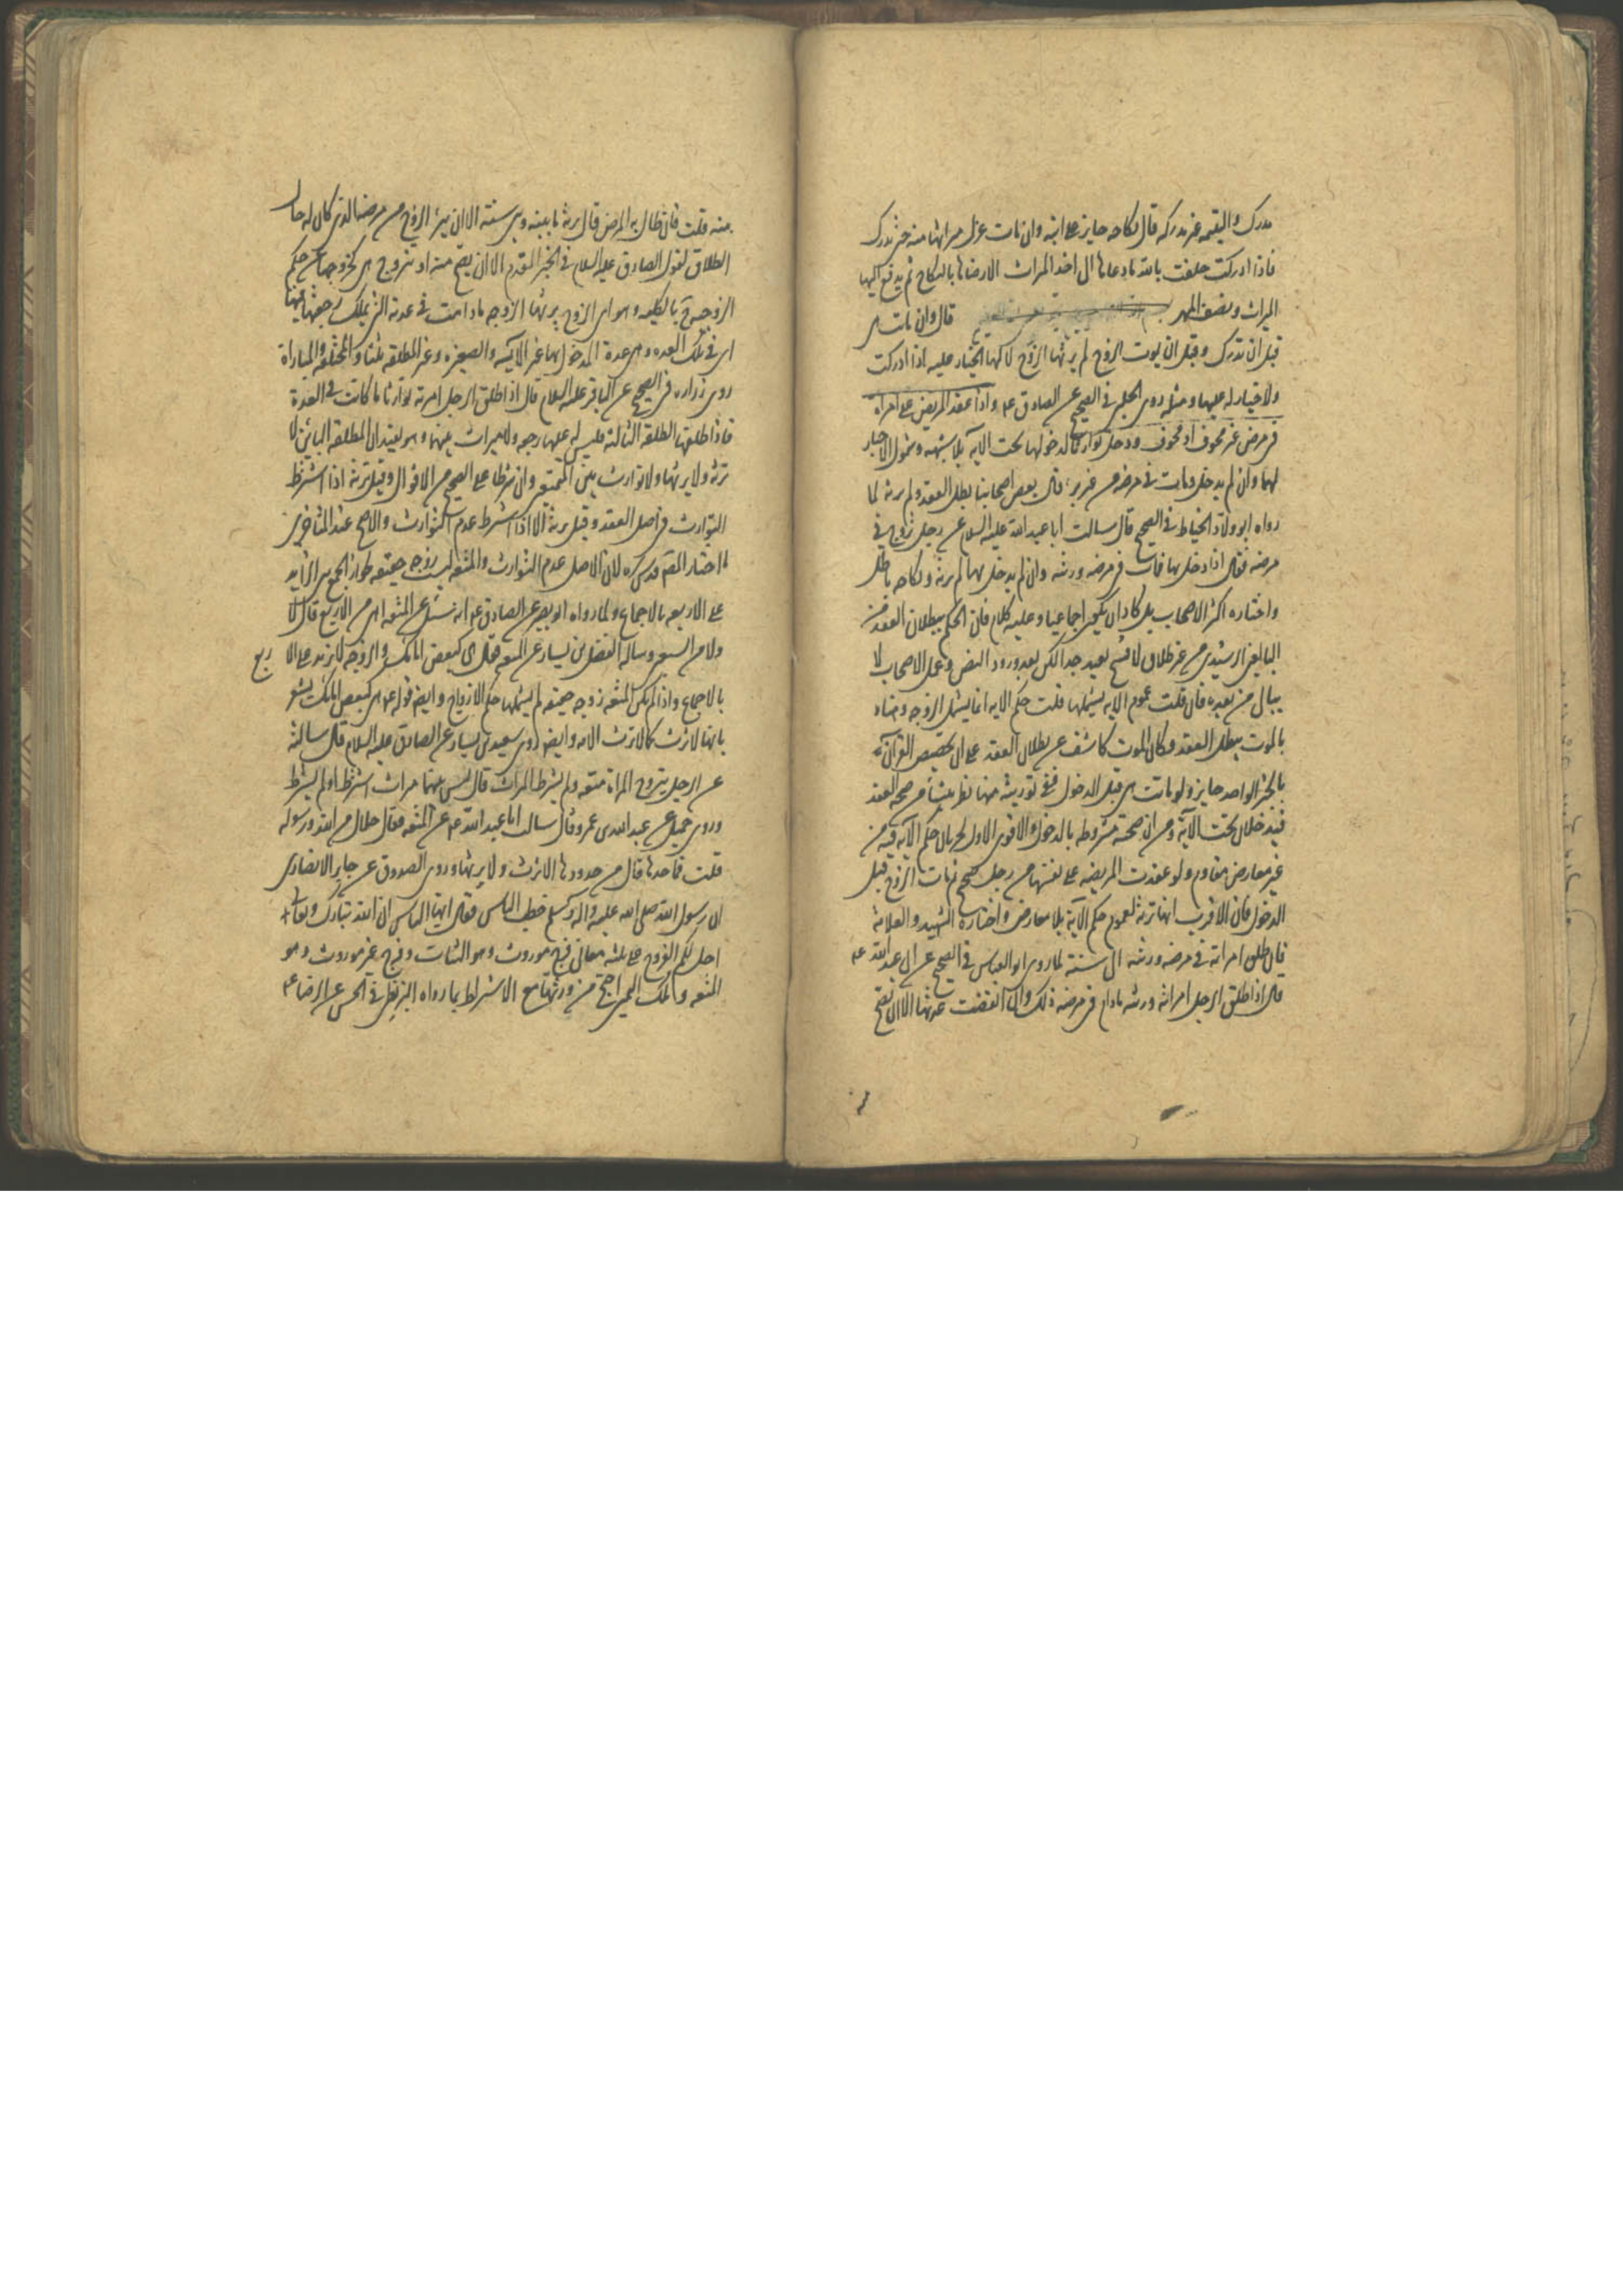 مدرك واليتيمه غير مدركه قال نكاحه جايز على ابنه وان مات عزل ميراثها منه حتى تدرك
فاذا ادركت حلفت بالله ما دعاها الى اخذ الميراث الا رضاها بالنكاح ثم يدفع اليها
الميراث ونصف المهر قال وان ماتت هى
قبل ان تدرك وقبل ان يموت الزوج لم يرثها الزوج لانه لها الخيار عليه اذا ادركت
ولا خيار له عليها ومثله روى الحلبى فى الصحيح عن الصادق ع واذا عقد المريض على امراه
فى مرض غير مخوف او مخوف ودخل توارثا لدخولها تحت الآيه بلا شبهه وشمول الاخبار
لهما وان لم يدخل ومات فى مرضه من غير برء قال بعض اصحابنا بطل العقد ولم ترثه لما
رواه ابو ولاد الحناط فى الصحيح قال سالت ابا عبد الله عليه السلام عن رجل تزوج فى
مرضه فقال اذا دخل بها فمات فى مرضه ورثته وان لم يدخل بها لم ترثه ونكاحه باطل
واختاره اكثر الاصحاب بل كاد ان يكون اجماعيا وعليه كلام فان الحكم ببطلان العقد من
البالغين الرشيدين من غير طلاق ولا فسخ بعيد جدا لكن بعد ورود النص وعمل الاصحاب لا
يبالى من بعده فان قلت عموم الايه يشملها قلت حكم الايه انما يشمل الزوجه وهناه
بالموت يبطل العقد وكان الموت كاشف عن بطلان العقد على ان تخصيص القرآن
بالخبر الواحد جايز ولو ماتت هى قبل الدخول ففى توريثه منها نظر ينشأ من صحه العقد
فيدخلان تحت الآية ومن ان صحته مشروطه بالدخول والاقوى الاول لجريان حكم الآيه فيه من
غير معارض مقاوم ولو عقدت المريضه على نفسها من رجل صحيح فمات الزوج قبل
الدخول فان الاقرب انها ترثه لعموم حكم الآية بلا معارض واختاره الشهيد والعلامة
فان طلق امراته فى مرضه ورثته الى سنته لما روى ابو العباس فى الصحيح عن ابى عبد الله ع
قال اذا طلق الرجل امراته ورثته مادام فى مرضه ذلك وان انقضت عدتها الا ان يصح
منه قلت فان طال به المرض قال ترثه ما بينه وبين سنته الا ان يبرء الزوج من مرضه الذى كان له حال
الطلاق لقول الصادق عليه السلام فى الخبر المقدم الا ان يصح منه او تتزوج هى لخروجها عن حكم
الزوجية بالكليه وهو اى الزوج يرثها الزوجه مادامت فى عدته التى يملك رجعتها فيها
اى فى تلك العده وهى عدة المدخول بها غير الآيسه والصغيره وغير المطلقه ثلثا والمختلعه والمباراة
روى زراره فى الصحيح عن الباقر عليه السلام قال اذا طلق الرجل امرته توارثا ما كانت فى العدة
فاذا طلقها الطلقه الثالثه فليس له عليها رجعه ولا ميراث بينهما وهو يفيد ان المطلقه البائن لا
ترثه ولا يرثها ولا توارث بين المتمتعين وان شرطا على الصحيح من الاقوال وقيل ترثه اذا اشترط
التوارث فى اصل العقد وقيل ترثه الا اذا اشترط عدم التوارث والاصح عند المتاخرين
ما اختار المص قدس سره لان الاصل عدم التوارث والمتعه ليست زوجه حقيقه لجواز الجمع بين الزايد
على الاربعه بالاجماع ولما رواه ابو بصير عن الصادق ع انه سئل عن المتعه اهى من الاربع قال لا
ولا من السبعين وساله الفضيل بن يسار عن المتعه فقال هى كبعض امائك والزوجه لا تزيد على الا ربع
بالاجماع واذا لم تكن المتعه زوجه حقيقه لم يشملها حكم الازواج وايضا قوله ع هى كبعض امائك يشعر
بانها لا ترث كما لا ترث الامه وايضا روى سعيد بن يسار عن الصادق عليه السلام قال سالته
عن الرجل يتزوج المراة متعه ولم يشترط الميراث قال ليس بينهما ميراث اشترط او لم يشترط
وروى جميل عن عبد الله بن عمرو قال سالت ابا عبد الله ع عن المتعه فقال حلال من الله ورسوله
قلت فما حدها قال من حدودها لا ترثك ولا ترثها وروى الصدوق عن جابر الانصارى
ان رسول الله صلى الله عليه واله وسلم خطب الناس فقال ايها الناس ان الله تبارك وتعالى
احل لكم الفروج على ثلثه معان فرج موروث وهو الثبات وفرج غير موروث وهو
المتعه وملك اليمين احتج من ورثها مع الاشتراط بما رواه البزنطى فى الحسن عن الرضا ع